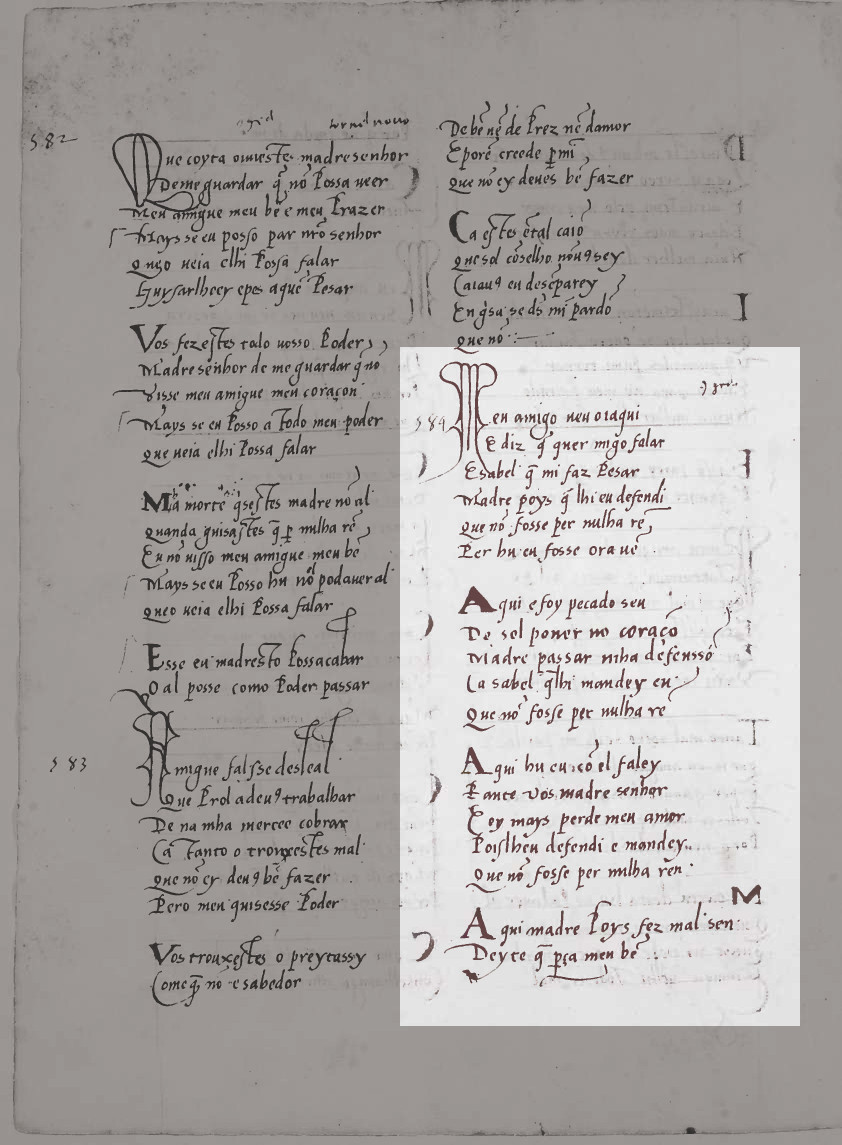 582
Que coyta ouuestes madre senhor
De me guardar q̄ nō Possa ueer
Meu amigue meu bē e meu Prazer
Mays se eu posso par nr̄o senhor
Queo ueia elhi Possa falar
Guysarlheey epes aquē Pesar
Vos fezestes todo uosso Poder
Madre senhor de me guardar q̄ nō
Visse meu amigue meu coraçon
Mays se eu Posso a todo meu poder
Que ueia elhi Possa falar
Mīa morte q̄sestes madre nō al
Quanda guisastes q̄ ꝑ nulha rē
Eu nō uisso meu amigue meu bē
Mays se eu Posso hu nō podaueral
Queo ueia elhi Possa falar
Esse eu madresto Possacabar
O al posse como Poder passar
583
Amigue falsse desleal
Que Prol adeuꝯ trabalhar
De na mha mercee cobrar
Ca tanto o trouxestes mal
Que nō ey deuꝯ bē fazer
Pero meu quisesse Poder
Vos trouxestes o preytassy
Come q̄ nō e sabedor
De bē nē de Prez nē damor
E porē creede ꝑ mī
Que nō ey deues bē fazer
Ca estes ētal caiō
Que sol cōselho nō uꝯ sey
Ca iauꝯ eu desēparey
En g̍sa se ds̄ mi pardō
Que nō
584
Meu amigo ueu oiaqui
E diz q̄ quer migo falar
E sabel q̄ mi faz Pesar
Madre poys q̄ lhi eu defendi
Que nō fosse per nulha rē
Per hu eu fosse ora uē
Aqui e foy pecado seu
De sol poner no coraçō
Madre passar mha defenssō
Ca sabel q̄ lhi mandey eu
Que nō fosse per nulha rē
Aqui hu eu cō el faley
Pante vos madre senhor
E oy mays perde meu amor
Poislheu defendi e mandey
Que nō fosse per nulha ren
Aqui madre Poys fez mal sen
Deyte q̄ ꝑça meu bē